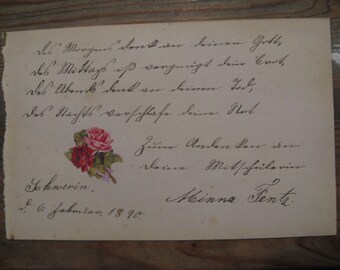 Des Morgens denk an deinen Gott,
Des Mittags iß vergnügt dein Brot,
Des Abends denk an deinen Tod,
Des Nachts verschlafe deine Not
Zum Andenken an
Deine Mitschülerin
Schwerin,
d. 6 Februar 1890.
Minna Fentz.